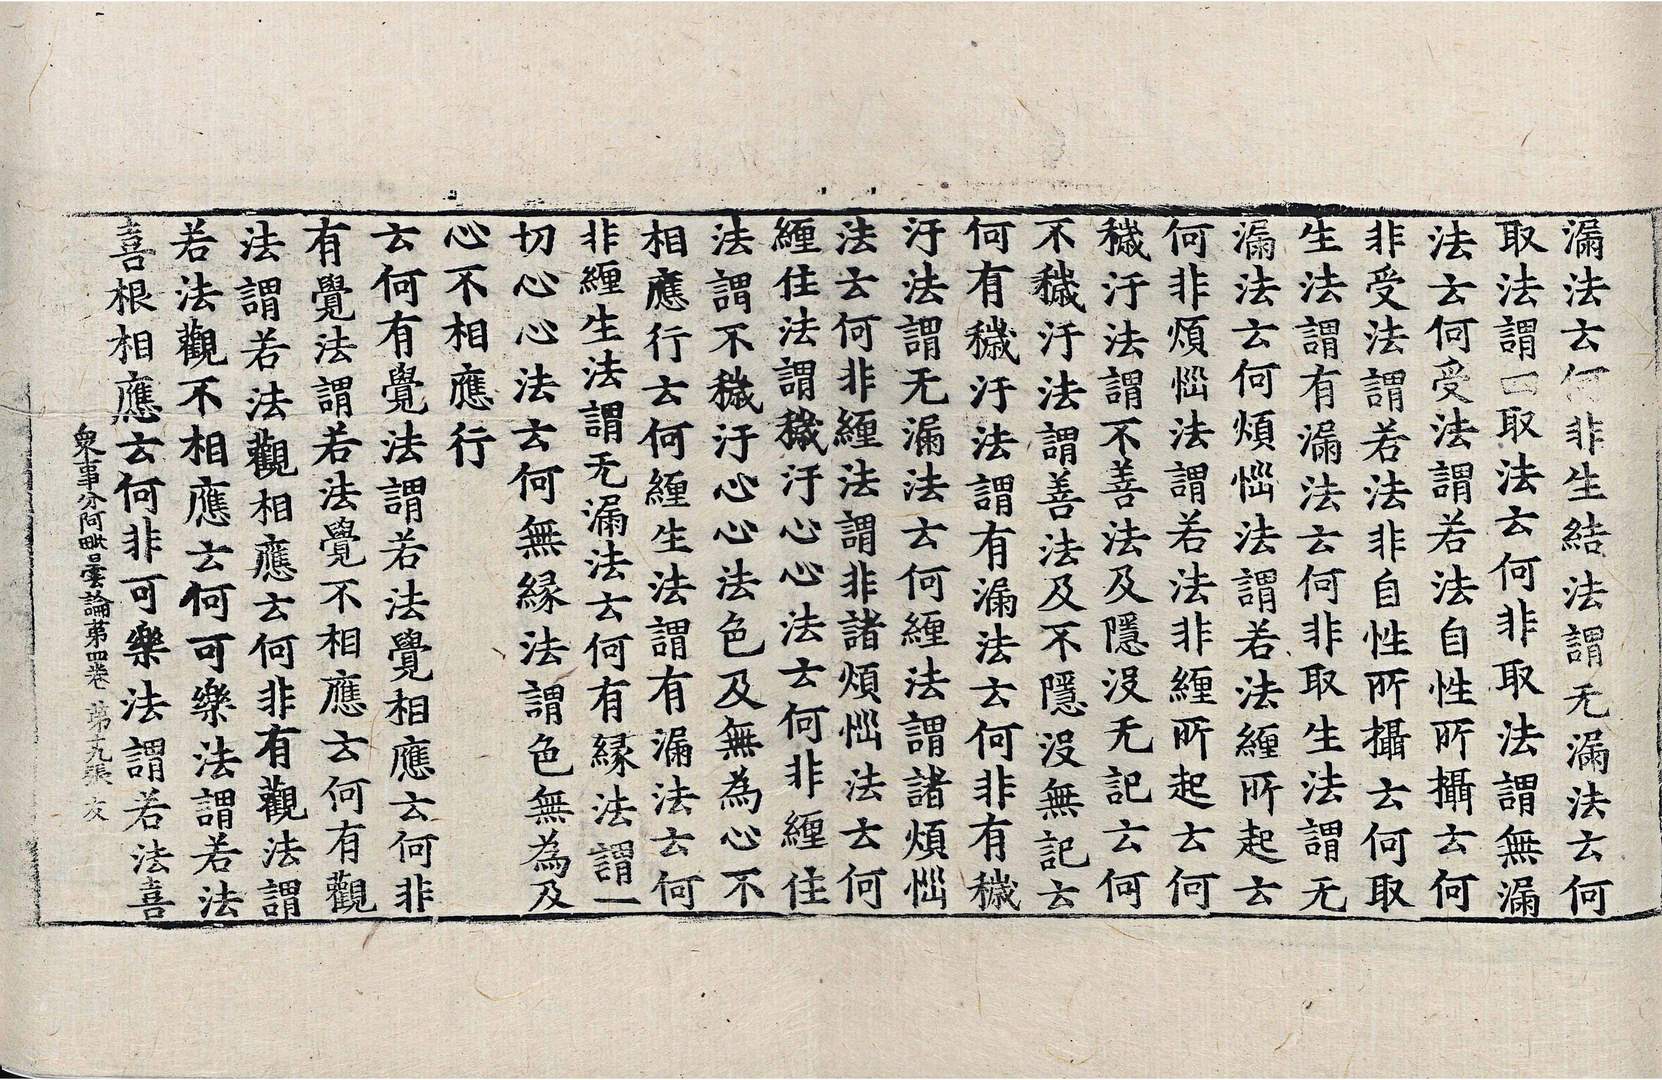 漏法去何非生結法謂无漏法去何
取法謂四取法去何非取法謂無漏
法去何受法謂若法自性所攝去何
非受法謂若法非自性所攝去何取
生法謂有漏法去何非取生法謂无
漏法去何煩惱法謂若法纏所起去
何非煩惱法謂若法非纏所起去何
穢汙法謂不善法及隱没无記去何
不穢汙法謂善法及不隱没無記去
何有穢汙法謂有漏法去何非有穢
汙法謂无漏法去何纏法謂諸煩惱
法去何非纏法謂非諸煩惱法去何
纏住法謂穢汙心心法去何非纏住
法謂不穢汙心心法色及無為心不
相應行去何纏生法謂有漏法去何
非纏生法謂无漏法去何有緣法謂一
切心心法去何無緣法謂色無為及
心不相應行
去何有覺法謂若法覺相應去何非
有覺法謂若法覺不相應去何有觀
法謂若法觀相應去何非有觀法謂
若法觀不相應去何可樂法謂若法
喜根相應去何非可樂法謂若法喜
衆事分阿毗曇論第四卷 第九張 友